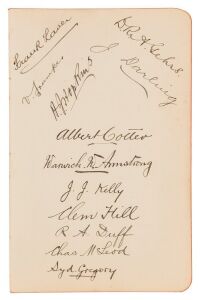 Frank Laver
D.R.A. Gehrs
V. Trumper
J Darling
A J Hopkins
Albert Cotter
Warwick W. Armstrong
J. J. Kelly
Clem Hill
R A Duff
Chas McLeod
Syd Gregory